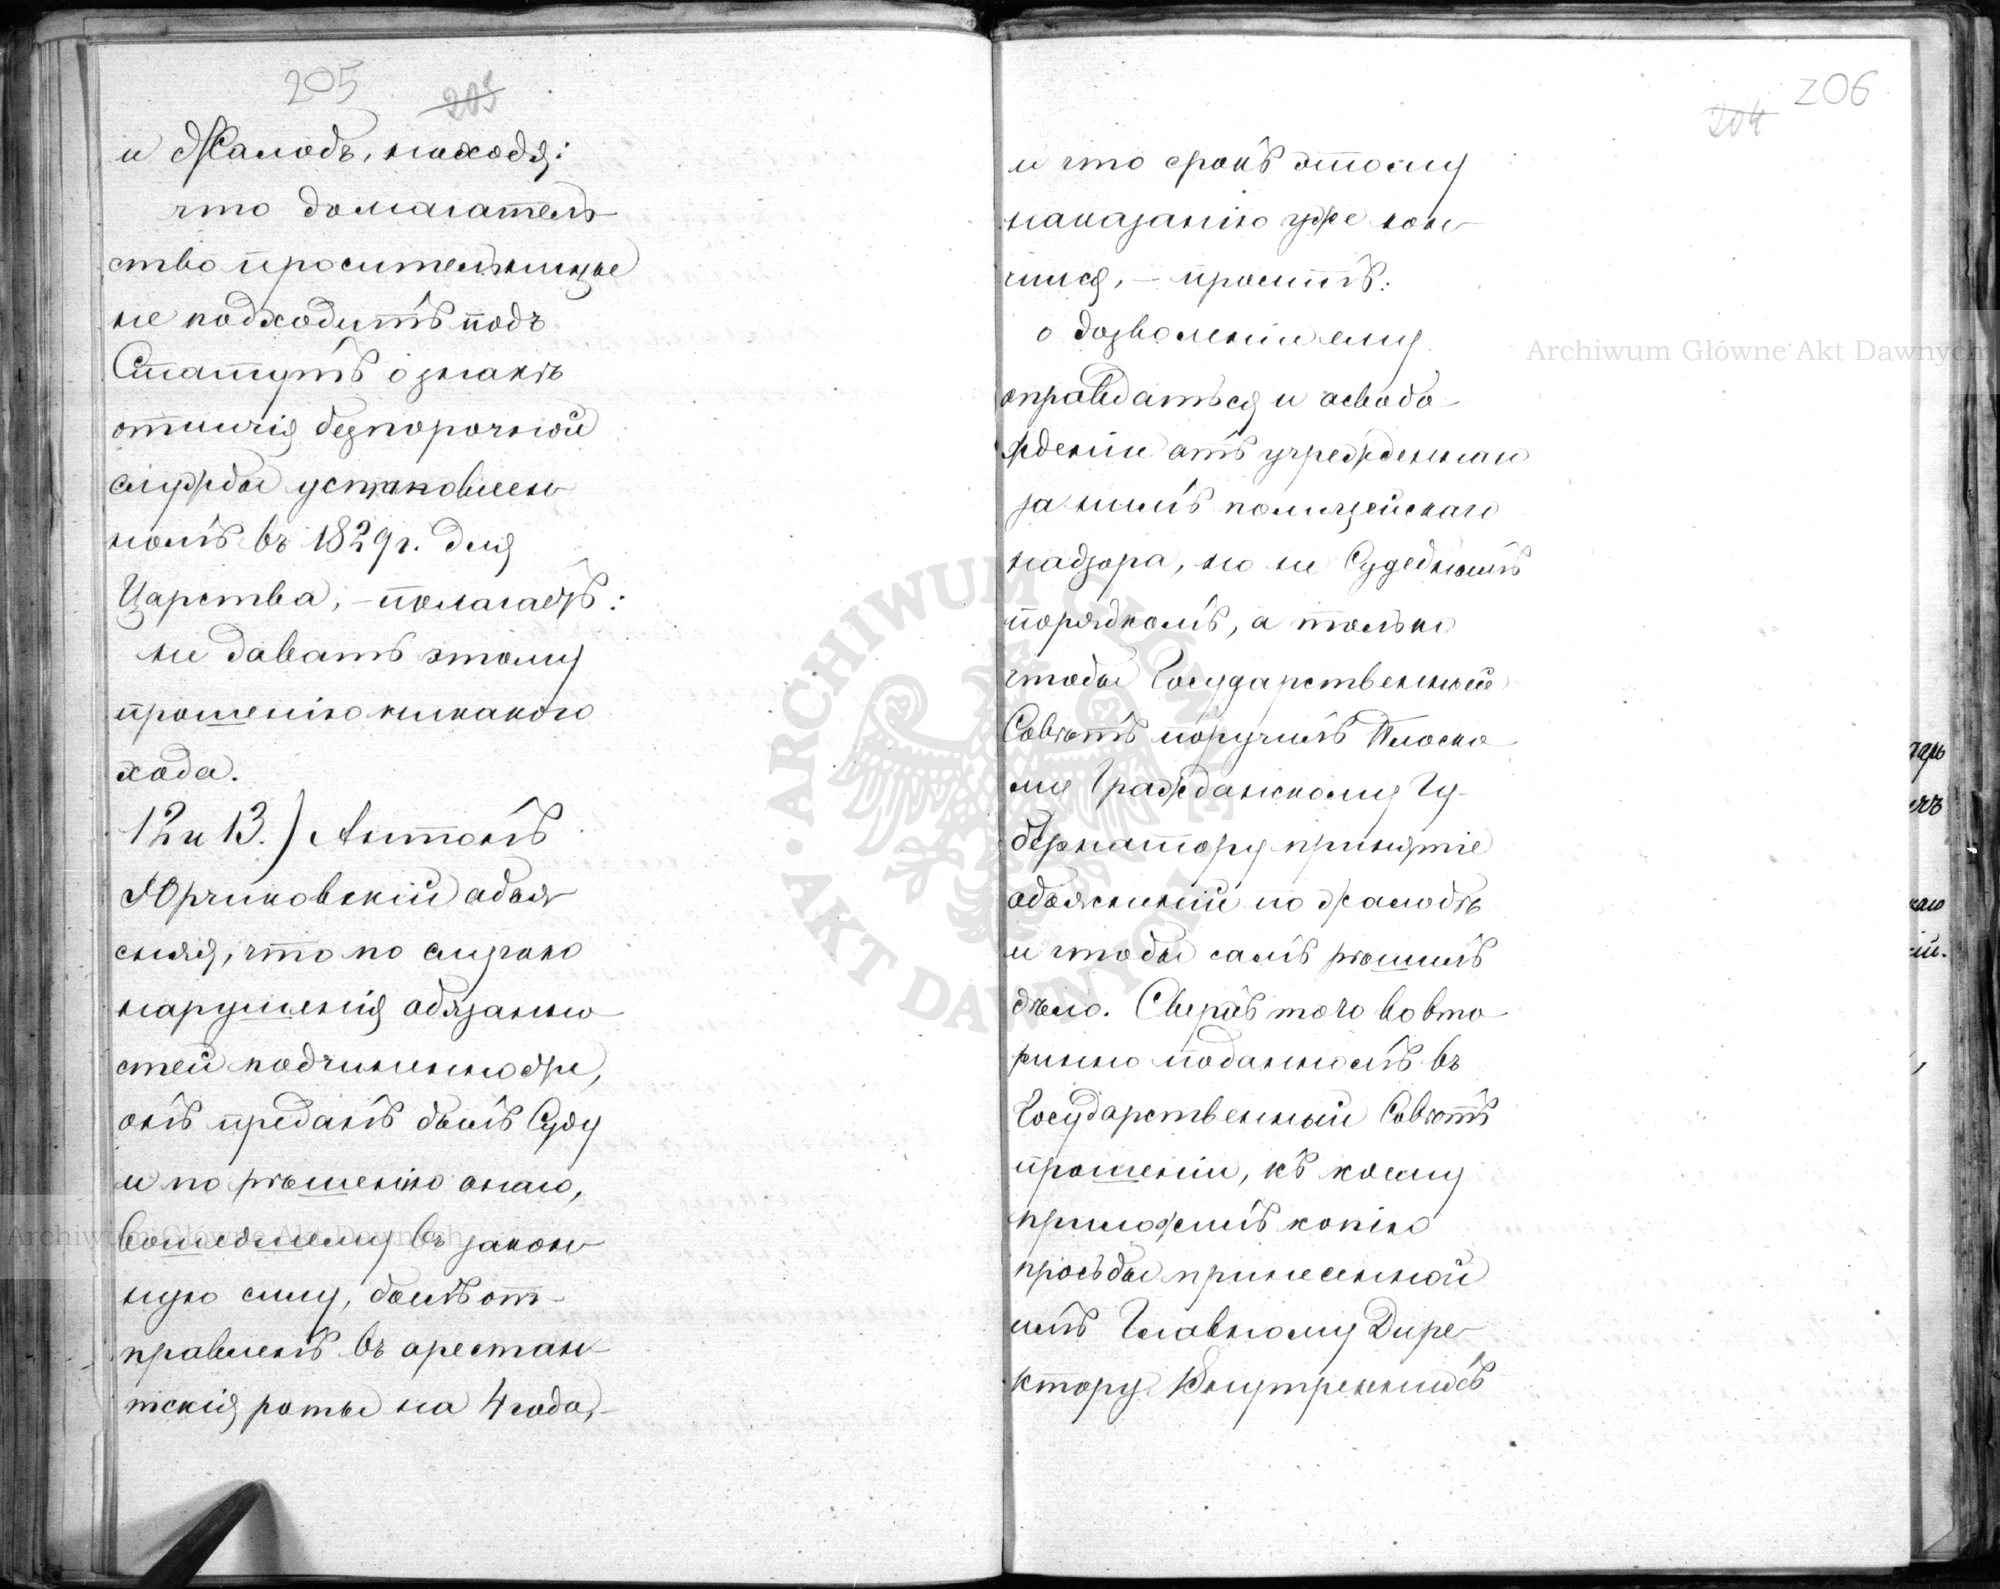 205
203
и Жалобъ, находя:
что домагатель
ство просительницы
не подходитъ подъ
Статутъ о знакѣ
отличія безпорочной
службы установлен
номъ въ 1829 г. для
Царства, – полагаетъ:
не давать этому
прошенію никакого
хода.
12 и 13.) Антонъ
Юрчиковскій объя
сняя, что по случаю
нарушенія обязанно
стей подчиненнодже,
онъ преданъ былъ Суду
и по рѣшенію онаго,
вошедшему въ закон
ную силу, былъ от-
правленъ въ арестан
тскія роты на 4 года,–
206
204
и что срокъ этому
наказанію уже кон
чился, – проситъ:
о дозволеніи ему
оправдаться и освобо
жденіи отъ учрежденнаго
за нимъ полицейскаго
надзора, но не Судебнымъ
порядкомъ, а только
чтобы Государственный
Совѣтъ поручилъ Плоско
му Гражданскому Гу-
бернатору принятіе
объясненій по жалобѣ
и чтобы самъ рѣшилъ
дѣло. Сверхъ того во вто
рично поданномъ въ
Государственный Совѣтъ
прошеніи, къ коему
приложилъ копію
просьбы принесенной
имъ Главному Дире
ктору Внутреннихъ
Archiwum Główne Akt Dawnych
Archiwum Główne Akt Dawnych
ARCHIWUM GŁÓWNE AKT DAWNYCH